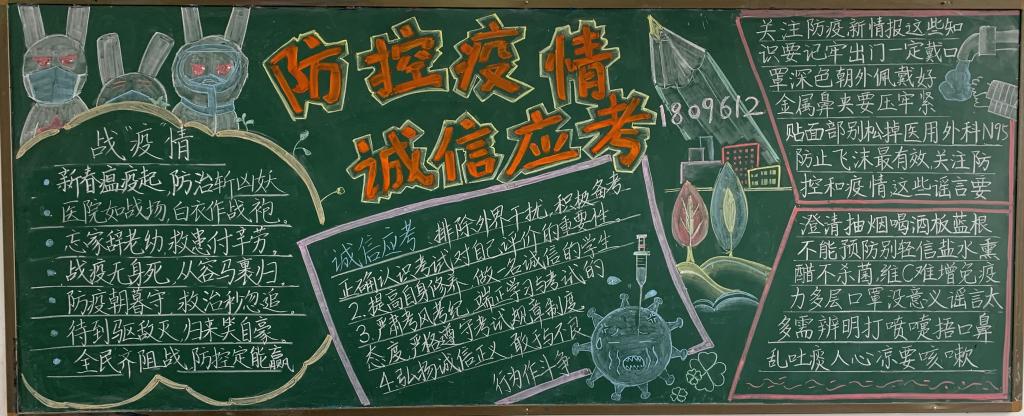 防控疫情
诚信应考
1809612
战"疫"情
新春瘟疫起 防治斩凶妖
医院如战场,白衣作战袍。
忘家辞老幼 救患付辛劳。
战疫无身死,从容马裹归。
防疫朝暮守 救治秒忽追。
待到驱敌灭 归来笑自豪。
全民齐阻战,防控定能赢
诚信应考
1.排除外界干扰,积极备考
正确认识考试对自己评价的重要性。
2.提高自身修养 做一名诚信的学生
3.严肃考风考纪 端正学习与考试的
态度 严格遵守考试规章制度。
4.弘扬诚信正义 敢于与不良
行为作斗争
关注防疫新情报这些知
识要记牢出门一定戴口
罩深色朝外佩戴好
金属鼻夹要压牢紧
贴面部别松掉医用外科N95
防止飞沫最有效.关注防
控和疫情这些谣言要
澄清抽烟喝酒板蓝根
不能预防别轻信盐水熏
醋不杀菌,维C难增免疫
力多层口罩没意义谣言太
多需辨明打喷嚏捂口鼻
乱吐痰人心凉要咳嗽